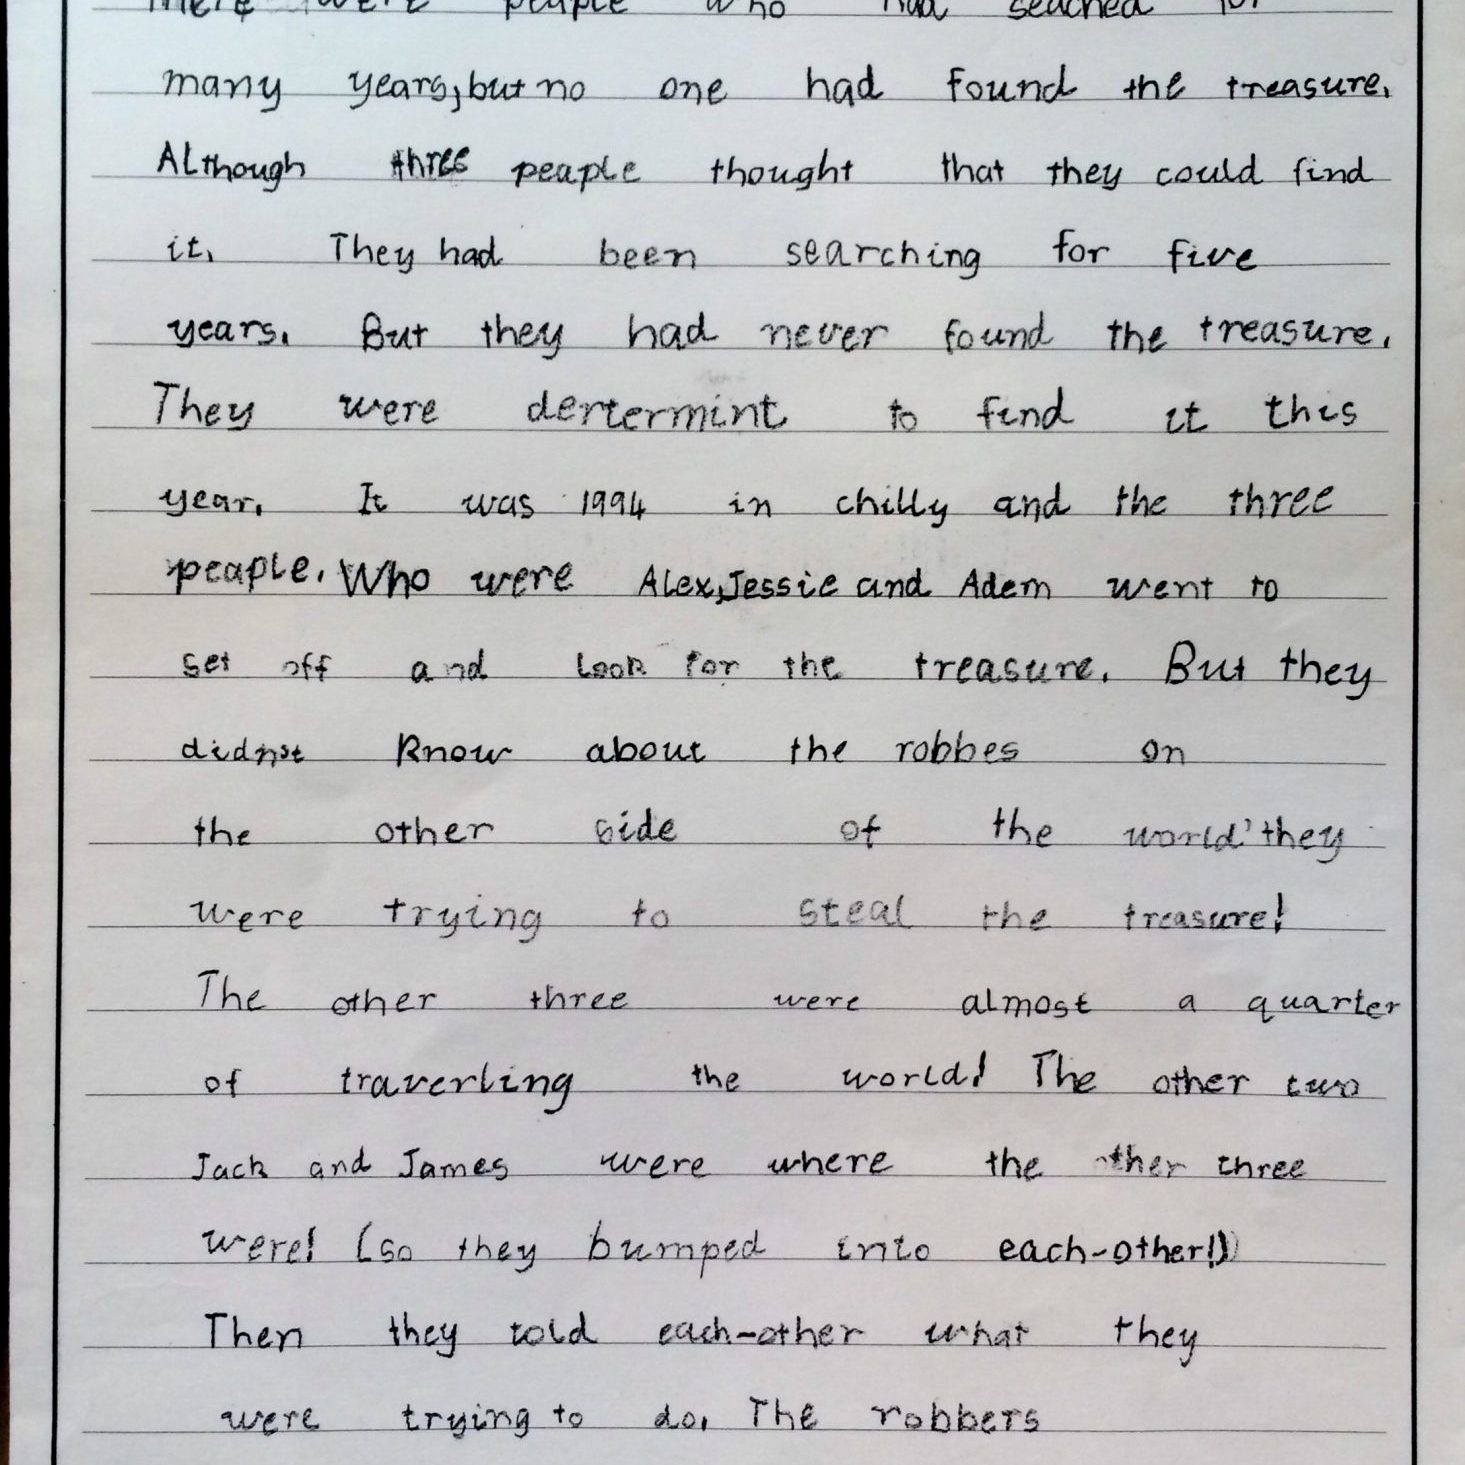 There were people who had seached for
many years, but no one had found the treasure.
Although three peaple thought that they could find
it. They had been searching for five
years. But they had never found the treasure.
They were dertermint to find it this
year. It was 1994 in chilly and the three
peaple. Who were Alex, Jessie and Adem went to
set off and look for the treasure. But they
know about the robbes on
the other side of the world' they
were trying to steal the treasure!
The other three were almost a quarter
of traverling the world! The other two
Jack and James were where the other three
were! (so they bumped into each-other!)
Then they told each-other what they
were trying to do. The robbers